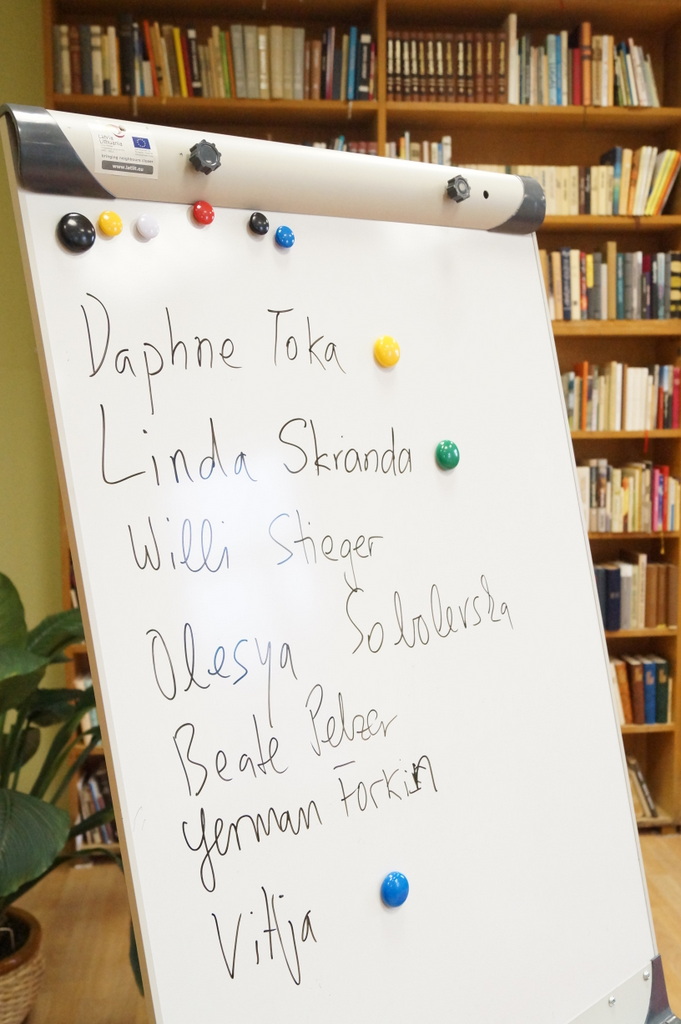 www.latlit.eu
Daphne Toka
Linda Skranda
Willi Stieger
Olesya Sobolevska
Beate Pelzer
German Forkin
Vitja